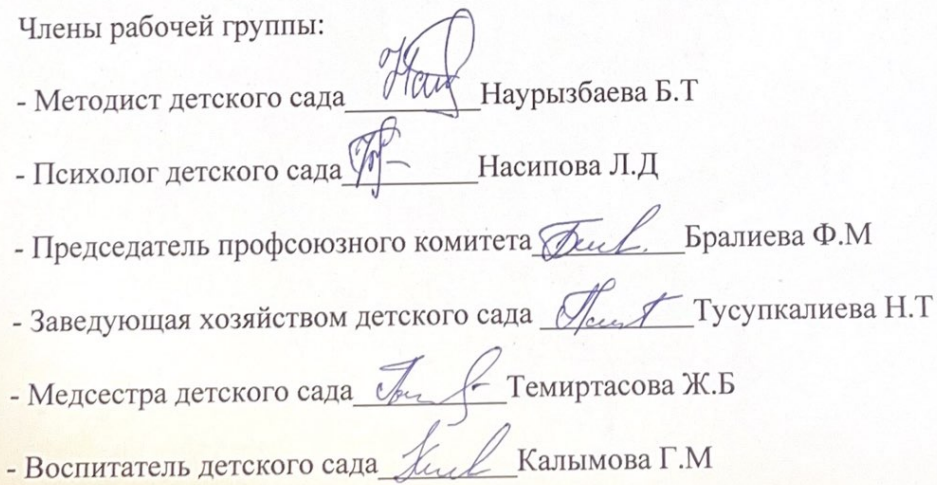 Члены рабочей группы:
- Методист детского сада__________Наурызбаева Б.Т
- Психолог детского сада__________Насипова Л.Д
- Председатель профсоюзного комитета___________Бралиева Ф.М
- Заведующая хозяйством детского сада ___________Тусупкалиева Н.Т
- Медсестра детского сада___________Темиртасова Ж.Б
- Воспитатель детского сада __________Калымова Г.М